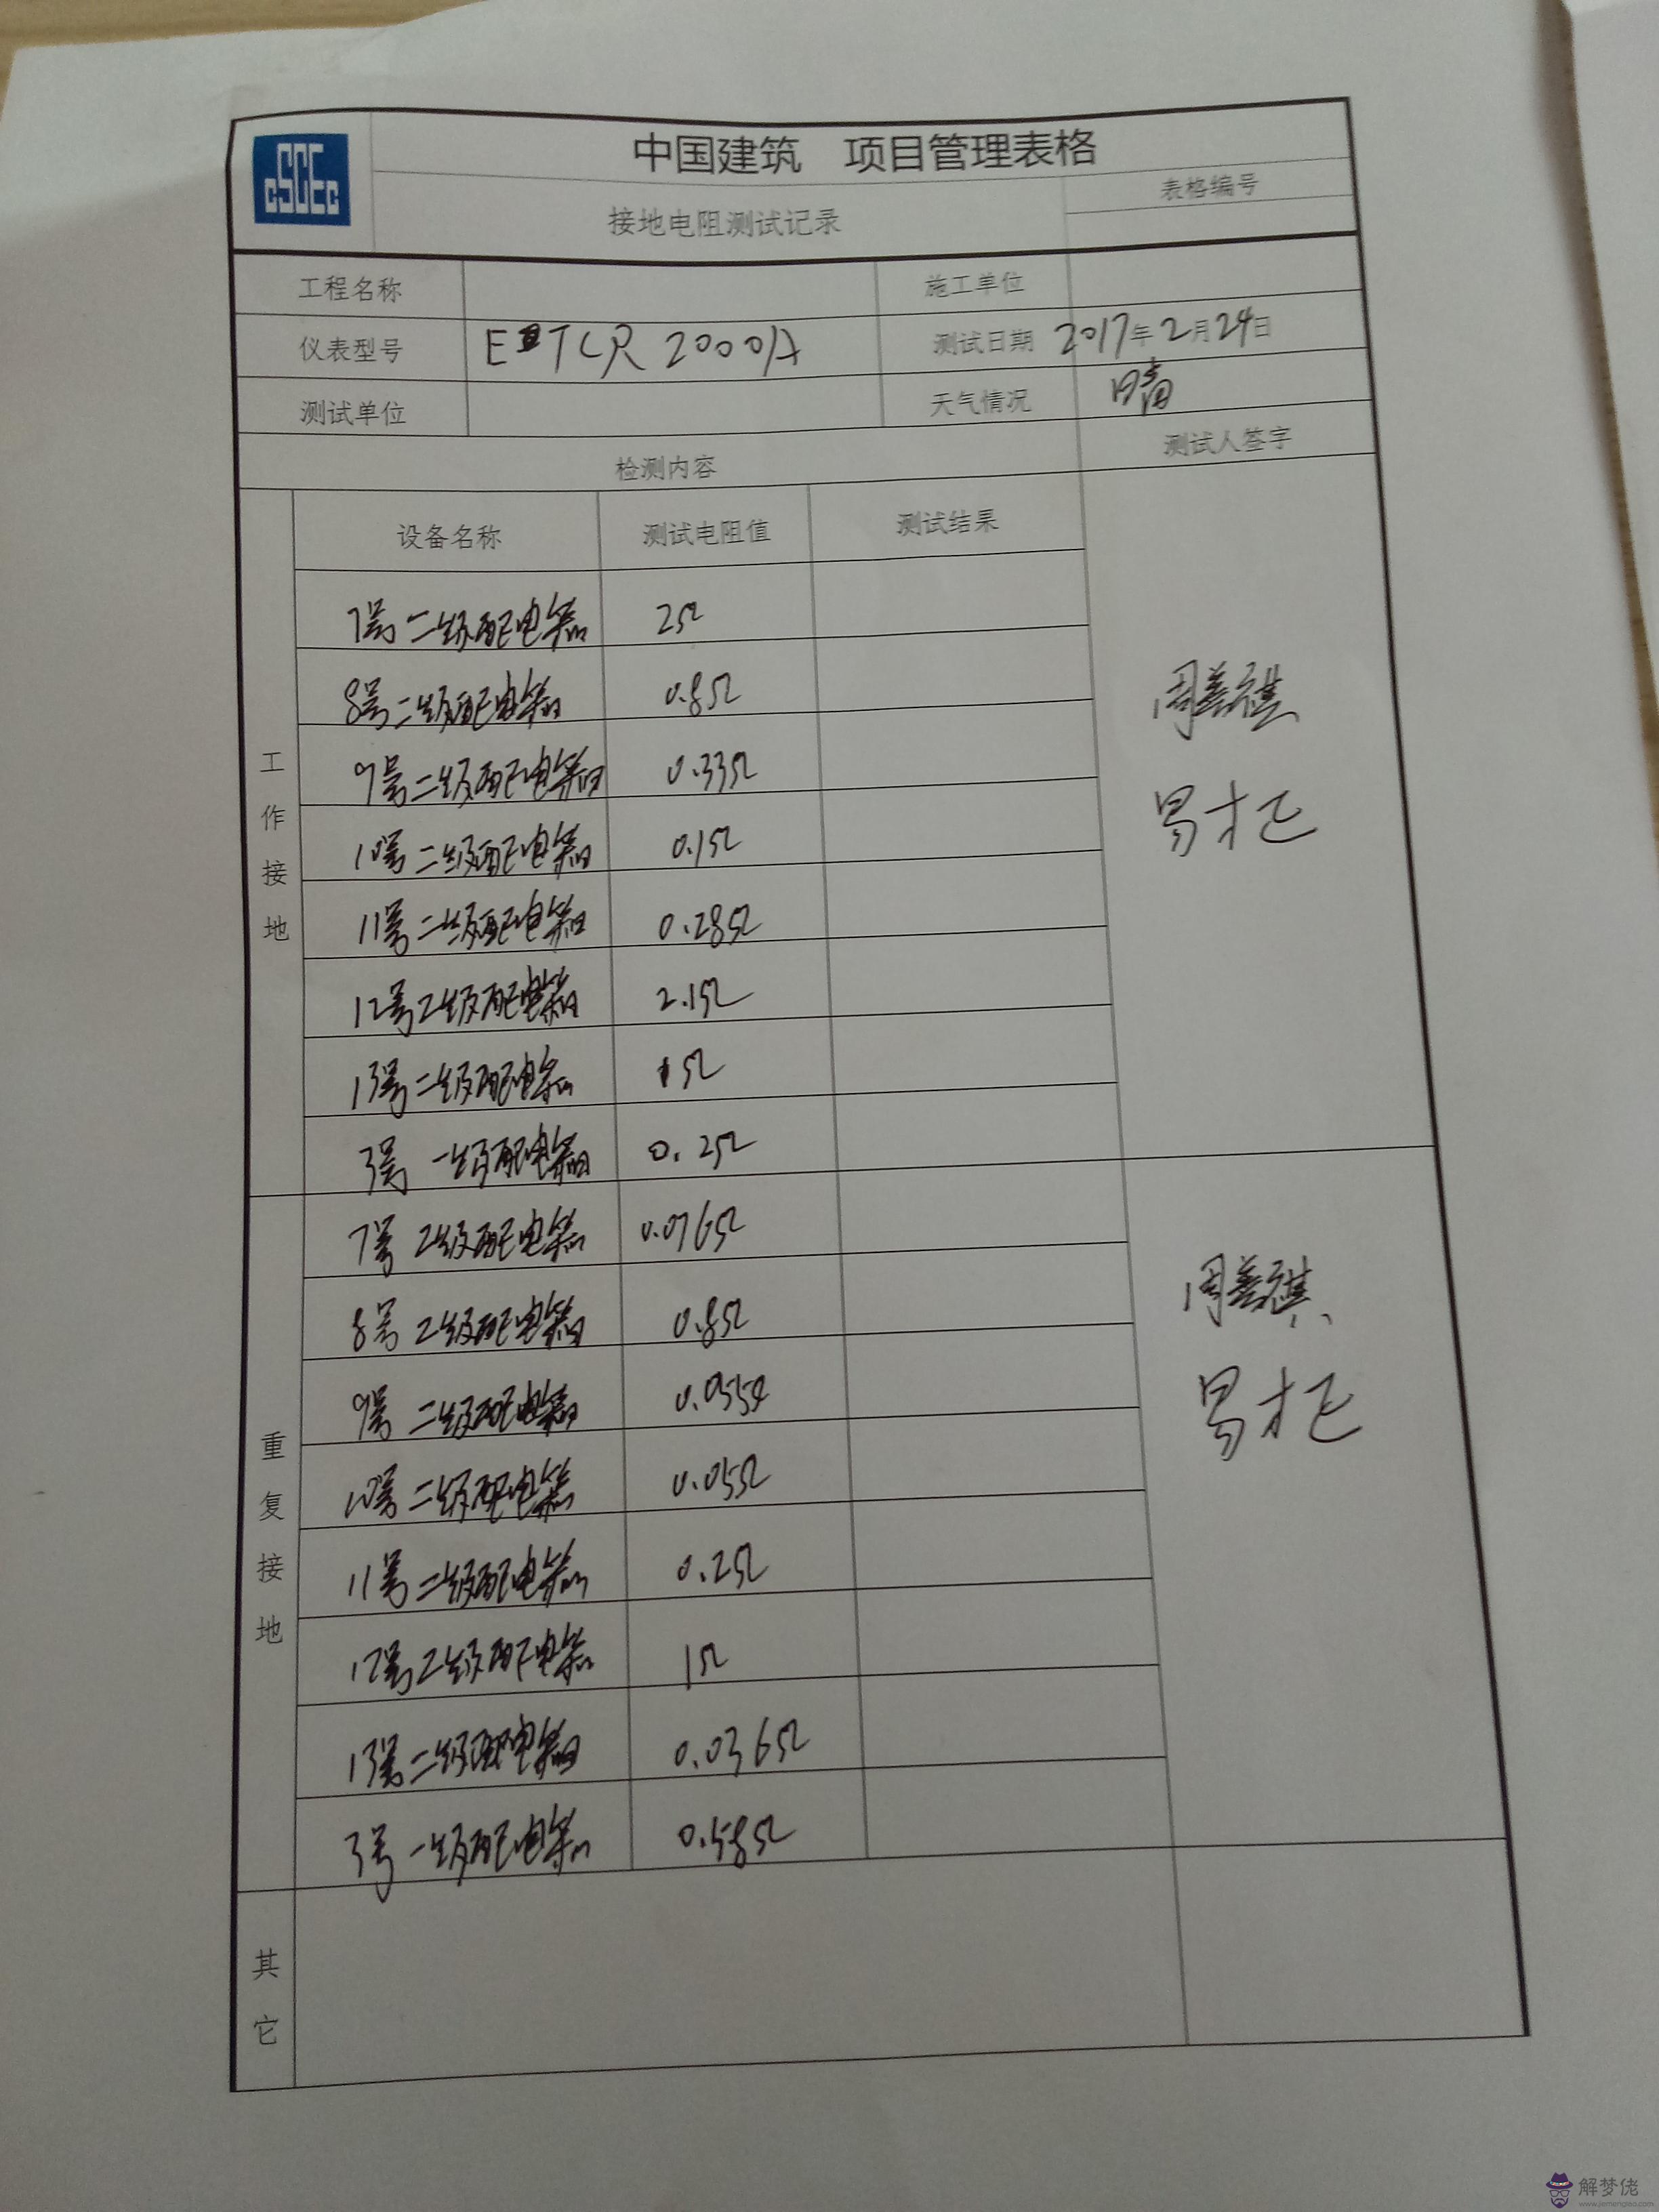 cSCEc
中国建筑 项目管理表格
接地电阻测试记录 表格编号
工程名称 施工单位
仪表型号 ETCR 2000A 测试日期 2017年2月24日
测试单位 天气情况 晴
检测内容 测试人签字
设备名称 测试电阻值 测试结果
工作接地
7号二级配电箱 2Ω
8号二级配电箱 0.8Ω
9号二级配电箱 0.33Ω
10号二级配电箱 0.1Ω
11号二级配电箱 0.28Ω
12号二级配电箱 2.1Ω
13号二级配电箱 1Ω
3号 一级配电箱 0.2Ω
周善祺
重复接地
7号 二级配电箱 0.076Ω
8号 二级配电箱 0.8Ω
9号 二级配电箱
10号 二级配电箱 0.05Ω
11号 二级配电箱 0.2Ω
12号二级配电箱 1Ω
13号二级配电箱 0.036Ω
3号 一级配电箱 0.58Ω
周善祺
其它
解梦佬
www.jiemenglao.com